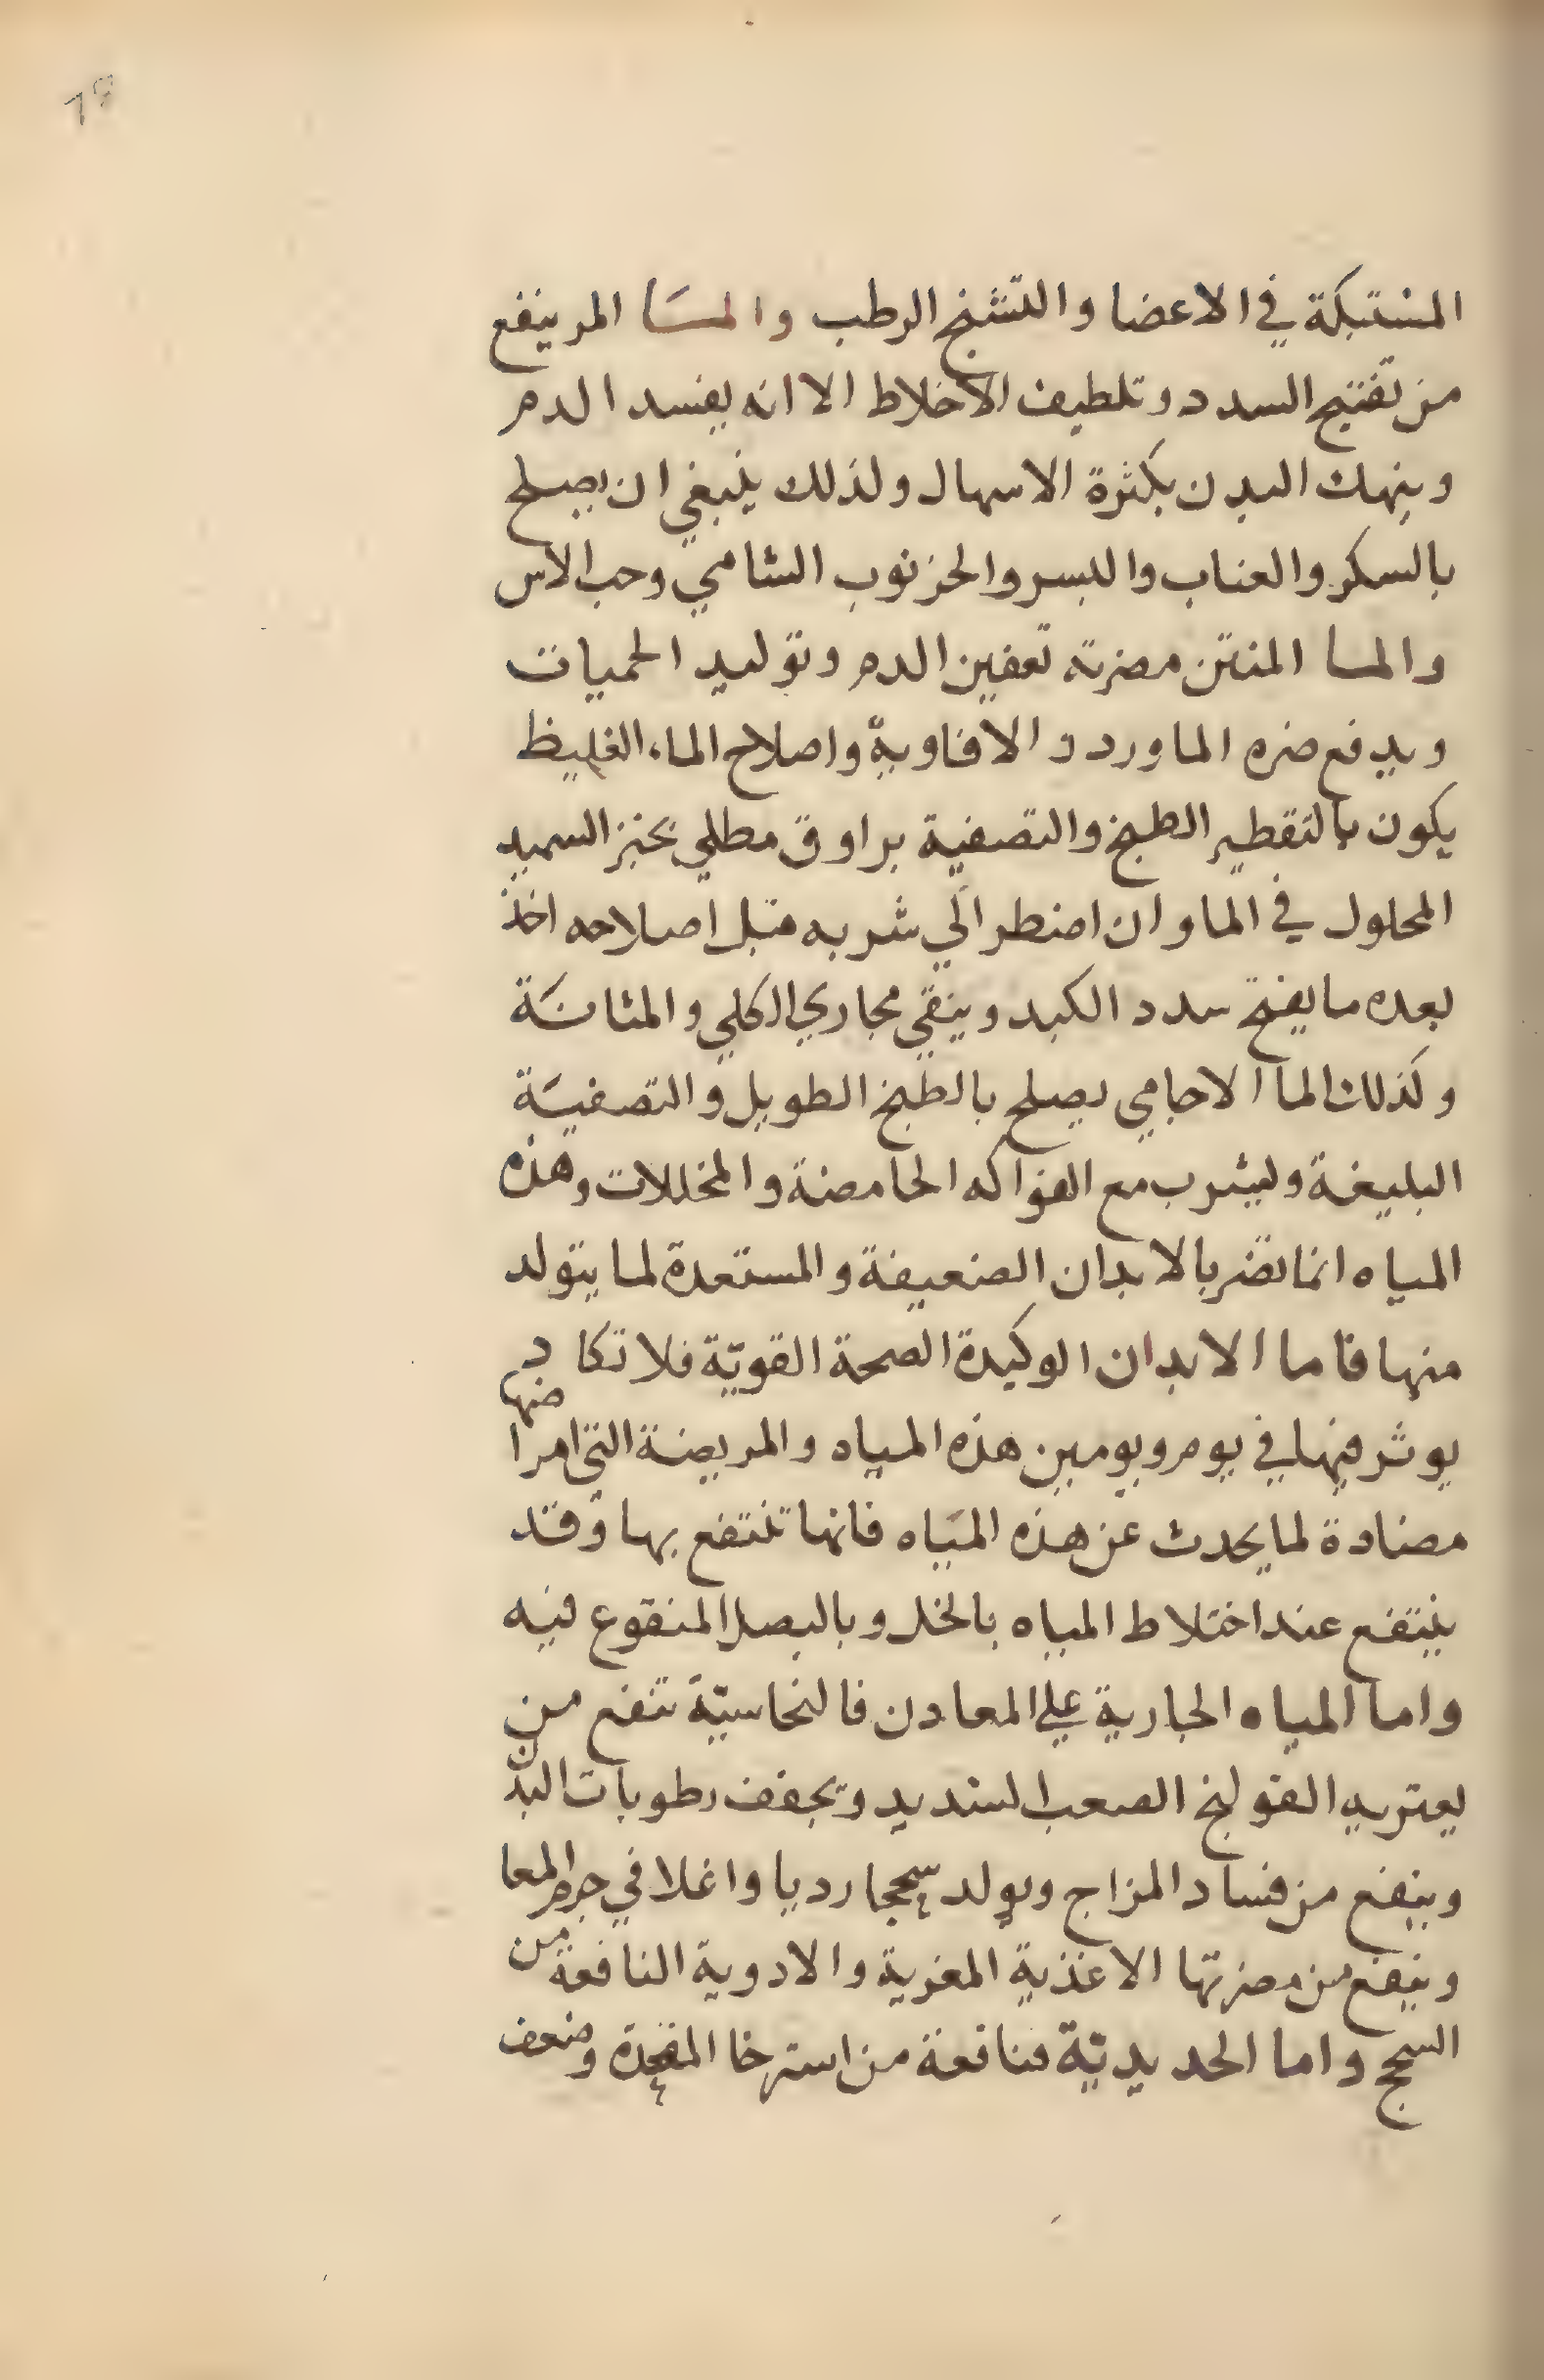 المشتبكة في الاعضا والتشنج الرطب والمسا المر ينفع
من تفتيح السدد وتلطيف الاخلاط الا انه يفسد الدم
وينهك البدن بكثرة الاسهال ولذلك ينبغي ان يصلح
بالسكر والعناب والبسر والخرنوب الشامي وحب الاس
والمسا المنتن مضرته تعفين الدم وتوليد الحميات
ويدفع ضره الماورد و الافاوية واصلاح الماء الغليظ
يكون بالتقطير الطبخ والتصفية براوق مطلي بخبز السميد
المحلول في الما وان اضطر الي شربه قبل اصلاحه اخذ
بعده ما يفتح سدد الكبد وينقي مجاري الكلي والمثانة
وكذلك الما الاجامي يصلح بالطبخ الطويل والتصفية
البليغة وليشرب مع الفواكه الحامضة والمخللات وهذه
المياه انما تضر بالابدان الضعيفة والمستعدة لما يتولد
منها فاما الابدان الوكيدة الصحة القوية فلا تكاد
يوثر فيها في يوم ويومين هذه المياه والمريضة التي امراضها
مضادة لما يحدث عن هذه المياه فانها تنتفع بها وقد
ينتفع عند اختلاط المياه بالخل وبالبصل المنقوع فيه
واما المياه الجارية علي المعادن فالنحاسية تنفع من
يعتريه القولنج الصعب الشديد وتجفف رطوبات البدن
وينفع من فساد المزاج ويولد سحجا رديا واغلا في جرم المعا
وينفع من مضرتها الاغذية المغرية والادوية النافعة من
السحج واما الحديدية فنافعة من استرخا المقعدة وضعف